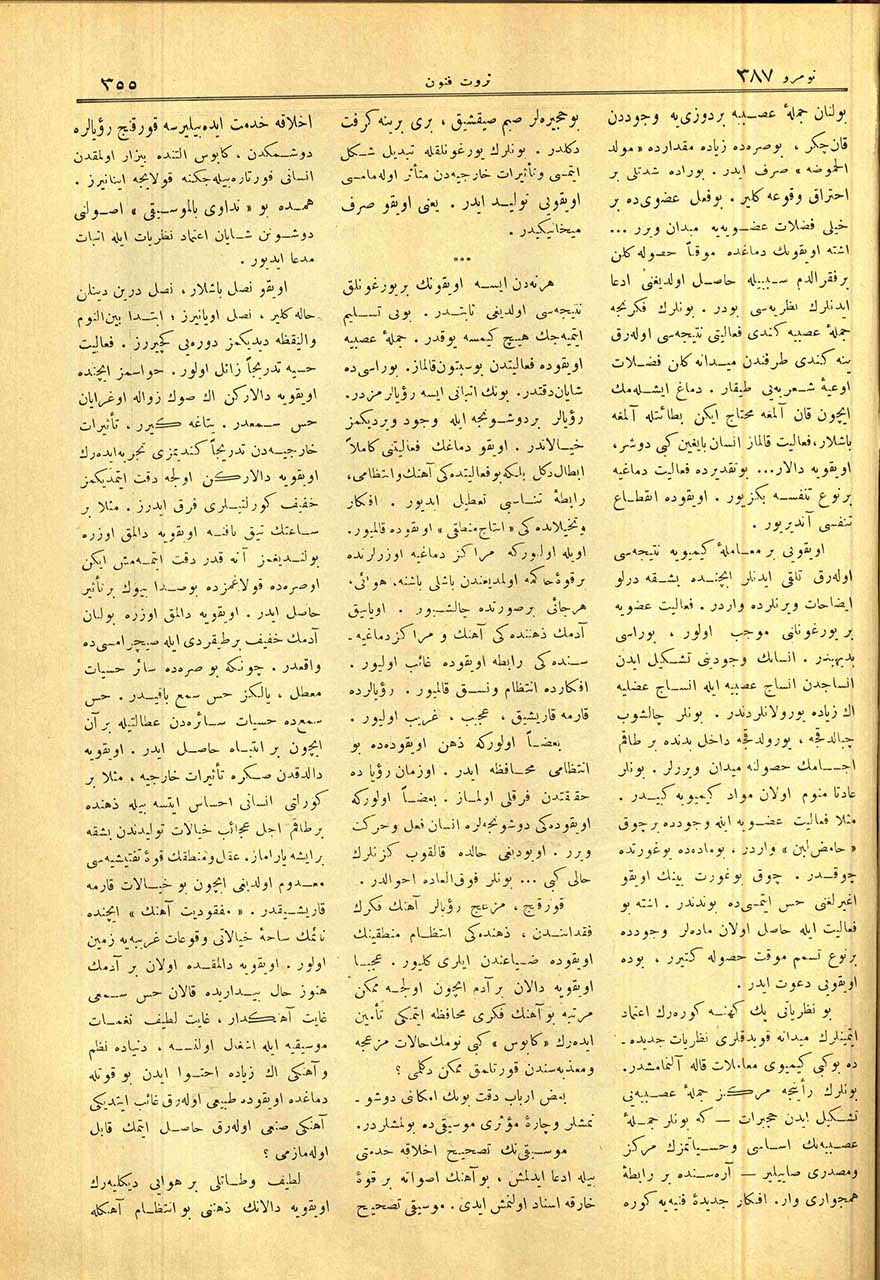 نومرو ٣٨٧
ثروت فنون
٣٥٥
بولنان جملۀ عصبیه بردوزی‌یه وجوددن
قان چکر ، بوصره‌ده زیاده مقدارده « مولد
الحموضه » صرف ایدر . بوراده شدتلی بر
احتراق وقوعه کلیر . بوفعل عضوی‌ده بر
خیلی فضلات عضویه‌یه میدان ویرر ...
اشته اویقونك دماغده موقتاً حصوله کلن
برفقرالدم سببیله حاصل اولدیغنی ادعا
ایدنلرك نظریه‌سی بودر . بونلرك فکرنجه
جملۀ عصبیه کندی فعالیتی نتیجه‌سی اوله‌رق
ینه کندی طرفندن میدانه کلن فضلات
اوعیۀ شعریه‌یی طیقار . دماغ ایشله‌مك
ایچون قان آلمغه محتاج ایکن بطائتله آلمغه
باشلار، فعالیت قالماز انسان بایغین کبی دوشر،
اویقویه دالار... بوتقدیرده فعالیت دماغیه
برنوع تنفسه بکزیور . اویقوده انقطاع
تنفسی آندیریور .
اویقویی بر معاملۀ کیمیویه نتیجه‌سی
اوله‌رق تلقی ایدنلر ایچنده بشقه درلو
ایضاحات ویرنلرده واردر . فعالیت عضویه
بر یورغونلغی موجب اولور ، بوراسی
بدیهیدر . انسانك وجودینی تشکیل ایدن
انساجدن انساج عصبیه ایله انساج عضلیه
اك زیاده یورولانلردندر . بونلر چالشوب
چبالادقجه ، یورولدقجه داخل بدنده بر طاقم
اجسامك حصولنه میدان ویررلر . بونلر
عادتا منوم اولان مواد کیمیویه کبیدر .
مثلا فعالیت عضویه ایله وجودده برچوق
« حامض لبن » واردر . بوماده‌ده یوغورتده
چوقدر . چوق یوغورت یینك اویقو
اغیرلغنی حس ایتمسی‌ده بوندندر . اشته بو
فعالیت ایله حاصل اولان ماده‌لر وجودده
برنوع تسمم موقت حصوله کتیرر ، بوده
اویقویی دعوت ایدر .
بو نظریاتی پك کهنه کوره‌رك اعتماد
ایتمینلرك میدانه قویدقلری نظریات جدیده ـ
ده بوکبی کیمیوی معاملات قاله آلنمامشدر.
بونلرك رأینجه مرکز جملۀ عصبیه‌یی
تشکیل ایدن حجیرات — که بونلر جملۀ
عصبیه‌نك اساسی وحسیاتمزك مرکز
ومصدری صاییلیر — آره‌سنده بر رابطۀ
همجواری وار. افکار جدیدۀ فنیه‌یه کوره
بوحجیره‌لر صیم صیقشیق ، بری برینه کرفت
دکلدر . بونلرك یورغونلقله تبدیل شکل
ایتمسی وتأثیرات خارجیه‌دن متأثر اوله‌مامسی
اویقویی تولید ایدر . یعنی اویقو صرف
میخانیکیدر .
***
هرنه‌دن ایسه اویقونك بریورغونلق
نتیجه‌سی اولدیغی ثابتدر . بونی تسلیم
ایتمیه‌جك هیچ کیمسه یوقدر . جملۀ عصبیه
اویقوده فعالیتدن بوسبتون قالماز. بوراسی‌ده
شایان دقتدر. بونك اثباتی ایسه رؤیالرمزدر.
رؤیالر بردوشونجه ایله وجود ویردیکمز
خیالاتدر . اویقو دماغك فعالیتنی کاملاً
ابطال دکل بلکه بوفعالیتده‌کی آهنك وانتظامی،
رابطۀ تناسی تعطیل ایدیور . افکار
وتخیلاتده‌کی « استاج منطقی » اویقوده قالمیور.
اویله اولیورکه مراکز دماغیه اوزرلرنده
برقوۀ حاکمه اولمدیغندن باشلی باشنه، هوائی،
هرجائی برصورتده چالشیور . اویانیق
آدمك ذهننده‌کی آهنك و مراکز دماغیه ـ
سنده‌کی رابطه اویقوده غائب اولیور .
افکارده انتظام ونسق قالمیور . رؤیالرده
قارمه قاریشیق ، عجیب ، غریب اولیور .
بعضاً اولورکه ذهن اویقوده‌ده بو
انتظامی محافظه ایدر . اوزمان رؤیا ده
حقیقتدن فرقلی اولماز . بعضاً اولورکه
اویقوده‌کی دوشونجه‌لره انسان فعل وحرکت
ویرر . اویودیغی حالده قالقوب کزنلرك
حالی کبی ... بونلر فوق‌العاده احوالدر .
قورقنج ، مزعج رؤیالر آهنك فکرك
فقداننندن ، ذهنده‌کی انتظام منطقینك
اویقوده ضیاعندن ایلری کلیور . عجبا
اویقویه دالان برآدم ایچون اولجه ممکن
مرتبه بو آهنك فکری محافظه ایتمکی تأمین
ایده‌رك « کابوس » کبی نومك حالات مزعجه
ومعذبه‌سندن قورتلمق ممکن دکلمی ؟
بعض ارباب دقت بونك امکاننی دوشو ـ
نمشلر وچارۀ مؤثری موسیقی‌ده بولمشلردر.
موسیقی‌نك تصحیح اخلاقه خدمتی
بیله ادعا ایدلمش ، بو آهنك اصواته بر قوۀ
خارقه اسناد اولنمش ایدی . موسیقی تصحیح
اخلاقه خدمت ایده‌بیلیرسه قورقنج رؤیالره
دوشمکدن ، کابوس التنده بیزار اولمقدن
انسانی قورتاره‌بیله‌جکنه قولایجه اینانیرز .
همده بو « تداوی بالموسیقی » اصولنی
دوشونن شایان اعتماد نظریات ایله اثبات
مدعا ایدیور .
اویقو نصل باشلار ، نصل درین دینلن
حاله کلیر ، نصل اویانیرز ؛ ابتدا بین‌النوم
والیقظه دیدیکمز دوره‌یی کچیررز . فعالیت
حسیه تدریجاً زائل اولور . حواسمز ایچنده
اویقویه دالارکن اك صوك زواله اوغرایان
حس سمعدر . یتاغه کیرر ، تأثیرات
خارجیه‌دن تدریجاً کندیمزی تجرید ایده‌رك
اویقویه دالارکن اولجه دقت ایتمدیکمز
خفیف کورلتیلری فرق ایدرز . مثلا بر
ساعتك تیق تاقنه اویقویه دالمق اوزره
بولندیغمز آنه قدر دقت ایتمه‌مش ایکن
اوصره‌ده قولاغمزده بوصدا بیوك برتأثیر
حاصل ایدر . اویقویه دالمق اوزره بولنان
آدمك خفیف برطیقردی ایله صیچرامسی‌ده
واقعدر . چونکه بو صره‌ده سائر حسیات
معطل ، یالکز حس سمع باقیدر . حس
سمعده حسیات سائره‌دن عطالتیله برآن
ایچون بر انتباه حاصل ایدر . اویقویه
دالدقدن صکره تأثیرات خارجیه ، مثلا بر
کورلتی انسانی احساس ایتسه بیله ذهنده
برطاقم اجل عجائب خیالات تولیدندن بشقه
برایشه یاراماز. عقل ومنطقك قوۀ تفتیشیه‌سی
معدوم اولدیغی ایچون بو خیالات قارمه
قاریشیقدر . « مفقودیت آهنك » ایچنده
نائمك ساحۀ خیالاتی وقوعات غریبه‌یه زمین
اولور . اویقویه دالمقده اولان بر آدمك
هنوز حال بیداریده قالان حس سمعی
غایت آهنکدار ، غایت لطیف نغمات
موسیقیه ایله اشغال اولنسه ، دنیاده نظم
وآهنکی اك زیاده احتوا ایدن بو قوتله
دماغده اویقوده طبیعی اوله‌رق غائب ایتدیکی
آهنکی صنعی اوله‌رق حاصل ایتمك قابل
اوله‌مازمی ؟
لطیف وطاتلی بر هوایی دیکلیه‌رك
اویقویه دالانك ذهنی بو انتظام آهنکله